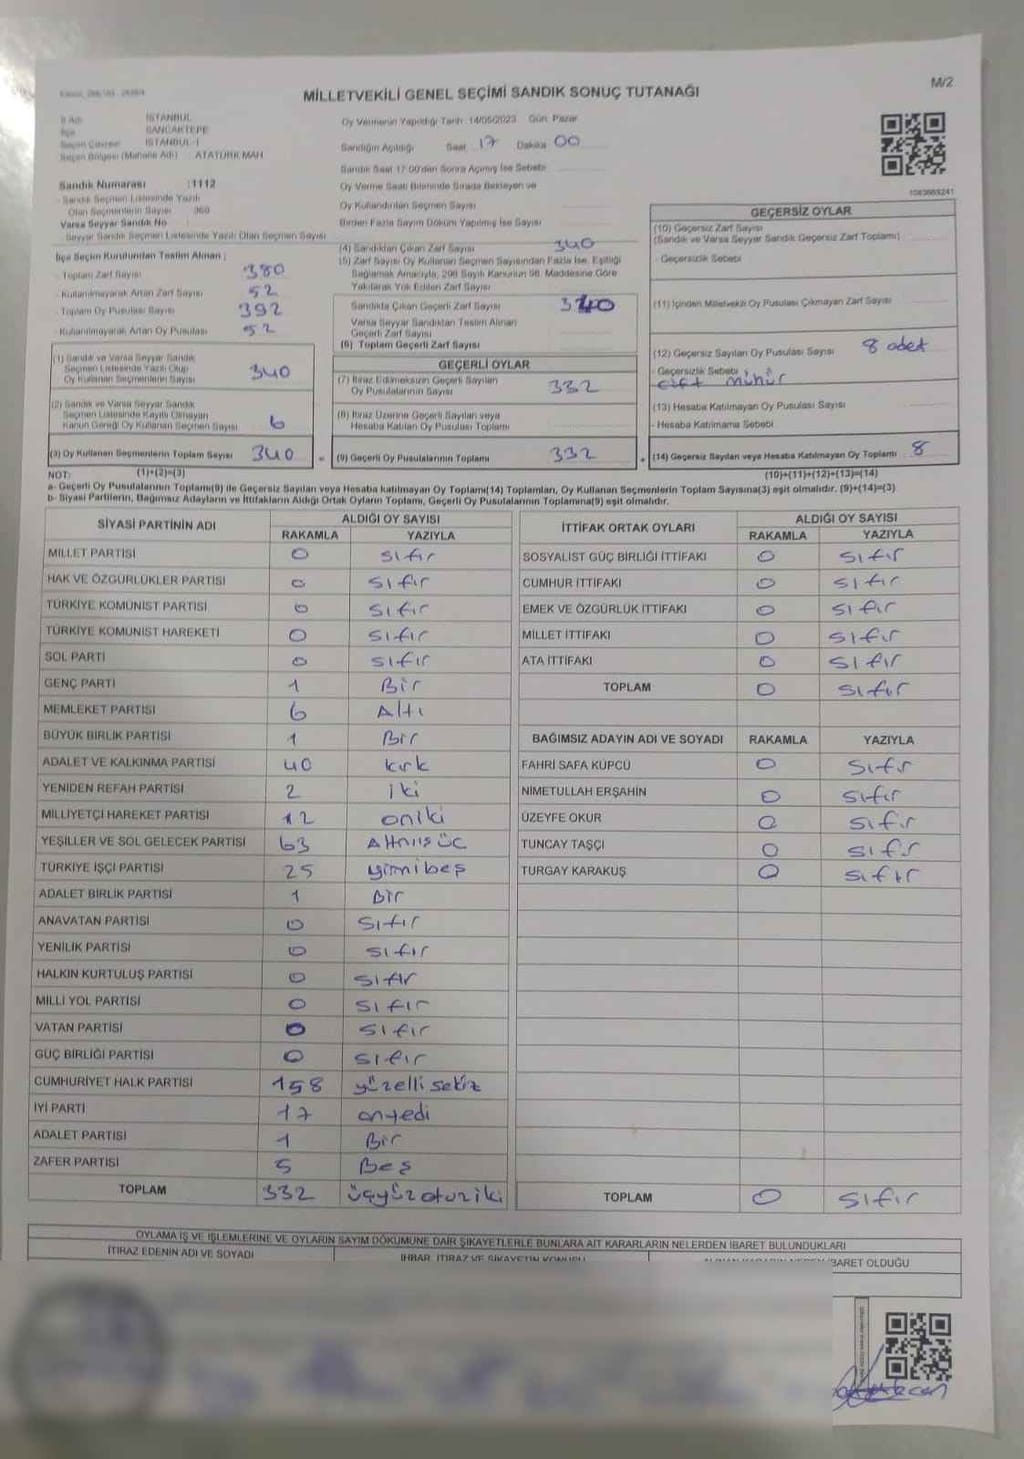 M/2
MİLLETVEKİLİ GENEL SEÇİMİ SANDIK SONUÇ TUTANAĞI
İSTANBUL
SANCAKTEPE
Seçim Çevresi İSTANBUL-1
Seçim Bölgesi (Mahalle Adı) : ATATÜRK MAH
Sandık Numarası : 1112
Sandık Seçmen Listesinde Yazılı
Olan Seçmenlerin Sayısı 360
Varsa Seyyar Sandık No
Seyyar Sandık Seçmen Listesinde Yazılı Olan Seçmen Sayısı
İlçe Seçim Kurulundan Teslim Alınan ;
- Toplam Zarf Sayısı 380
- Kullanılmayarak Artan Zarf Sayısı 52
- Toplam Oy Pusulası Sayısı 392
- Kullanılmayarak Artan Oy Pusulası 52
(1) Sandık ve Varsa Seyyar Sandık
Seçmen Listesinde Yazılı Olup
Oy Kullanan Seçmenlerin Sayısı 340
(2) Sandık ve Varsa Seyyar Sandık
Seçmen Listesinde Kayıtlı Olmayan
Kanun Gereği Oy Kullanan Seçmen Sayısı
(3) Oy Kullanan Seçmenlerin Toplam Sayısı 340 =
Oy Vermenin Yapıldığı Tarih : 14/05/2023 Gün: Pazar
Sandığın Açıldığı Saat 17 Dakika 00
Sandık Saat 17:00'den Sonra Açılmış İse Sebebi
Oy Verme Saati Bitiminde Sırada Bekleyen ve
Oy Kullandırılan Seçmen Sayısı
Birden Fazla Sayım Döküm Yapılmış İse Sayısı
(4) Sandıktan Çıkan Zarf Sayısı 340
(5) Zarf Sayısı Oy Kullanan Seçmen Sayısından Fazla İse, Eşitliği
Sağlamak Amacıyla, 298 Sayılı Kanunun 98. Maddesine Göre
Yakılarak Yok Edilen Zarf Sayısı
Sandıkta Çıkan Geçerli Zarf Sayısı 340
Varsa Seyyar Sandıktan Teslim Alınan
Geçerli Zarf Sayısı
(6) Toplam Geçerli Zarf Sayısı
GEÇERLİ OYLAR
(7) İtiraz Edilmeksizin Geçerli Sayılan
Oy Pusulalarının Sayısı 332
(8) İtiraz Üzerine Geçerli Sayılan veya
Hesaba Katılan Oy Pusulaları Toplamı
(9) Geçerli Oy Pusulalarının Toplamı 332 +
GEÇERSİZ OYLAR
(10) Geçersiz Zarf Sayısı
(Sandık ve Varsa Seyyar Sandık Geçersiz Zarf Toplamı)
- Geçersizlik Sebebi
(11) İçinden Milletvekili Oy Pusulası Çıkmayan Zarf Sayısı
(12) Geçersiz Sayılan Oy Pusulası Sayısı 8 adet
- Geçersizlik Sebebi
çift mühür
(13) Hesaba Katılmayan Oy Pusulası Sayısı
- Hesaba Katılmama Sebebi
(14) Geçersiz Sayılan veya Hesaba Katılmayan Oy Toplamı 8
NOT: (1)+(2)=(3) (10)+(11)+(12)+(13)=(14)
a- Geçerli Oy Pusulalarının Toplamı(9) ile Geçersiz Sayılan veya Hesaba katılmayan Oy Toplamı(14) Toplamları, Oy Kullanan Seçmenlerin Toplam Sayısına(3) eşit olmalıdır. (9)+(14)=(3)
b- Siyasi Partilerin, Bağımsız Adayların ve İttifakların Aldığı Ortak Oyların Toplamı, Geçerli Oy Pusulalarının Toplamına(9) eşit olmalıdır.
SİYASİ PARTİNİN ADI ALDIĞI OY SAYISI
RAKAMLA YAZIYLA
MİLLET PARTİSİ 0 sıfır
HAK VE ÖZGÜRLÜKLER PARTİSİ 0 sıfır
TÜRKİYE KOMÜNİST PARTİSİ 0 sıfır
TÜRKİYE KOMÜNİST HAREKETİ 0 sıfır
SOL PARTİ 0 sıfır
GENÇ PARTİ 1 Bir
MEMLEKET PARTİSİ 6 Altı
BÜYÜK BİRLİK PARTİSİ 1 Bir
ADALET VE KALKINMA PARTİSİ 40 kırk
YENİDEN REFAH PARTİSİ 2 iki
MİLLİYETÇİ HAREKET PARTİSİ 12 oniki
YEŞİLLER VE SOL GELECEK PARTİSİ 63 Altmış üç
TÜRKİYE İŞÇİ PARTİSİ 25 yirmibeş
ADALET BİRLİK PARTİSİ 1 Bir
ANAVATAN PARTİSİ 0 sıfır
YENİLİK PARTİSİ 0 sıfır
HALKIN KURTULUŞ PARTİSİ 0 sıfır
MİLLİ YOL PARTİSİ 0 sıfır
VATAN PARTİSİ 0 sıfır
GÜÇ BİRLİĞİ PARTİSİ 0 sıfır
CUMHURİYET HALK PARTİSİ 158 yüzelli sekiz
İYİ PARTİ 17 onyedi
ADALET PARTİSİ 1 Bir
ZAFER PARTİSİ 5 Beş
TOPLAM 332 üçyüzotuziki
İTTİFAK ORTAK OYLARI ALDIĞI OY SAYISI
RAKAMLA YAZIYLA
SOSYALİST GÜÇ BİRLİĞİ İTTİFAKI 0 sıfır
CUMHUR İTTİFAKI 0 sıfır
EMEK VE ÖZGÜRLÜK İTTİFAKI 0 sıfır
MİLLET İTTİFAKI 0 sıfır
ATA İTTİFAKI 0 sıfır
TOPLAM 0 sıfır
BAĞIMSIZ ADAYIN ADI VE SOYADI RAKAMLA YAZIYLA
FAHRİ SAFA KÜPCÜ 0 sıfır
NİMETULLAH ERŞAHİN 0 sıfır
ÜZEYFE OKUR 0 sıfır
TUNCAY TAŞÇI 0 sıfır
TURGAY KARAKUŞ 0 sıfır
TOPLAM 0 sıfır
OYLAMA İŞ VE İŞLEMLERİNE VE OYLARIN SAYIM DÖKÜMÜNE DAİR ŞİKAYETLERLE BUNLARA AİT KARARLARIN NELERDEN İBARET BULUNDUKLARI
İTİRAZ EDENİN ADI VE SOYADI İHBAR, İTİRAZ VE ŞİKAYETİN KONUSU BARET OLDUĞU